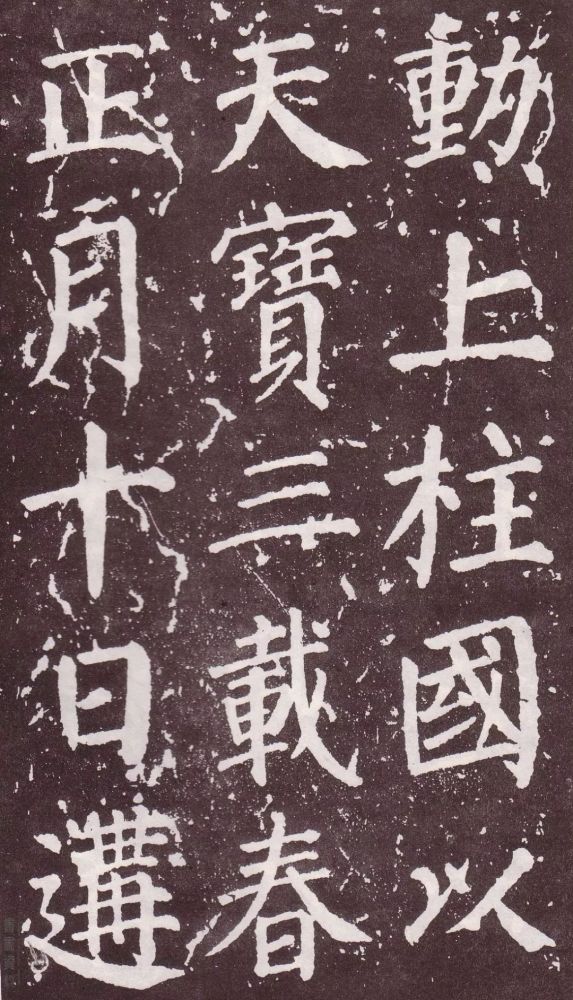 動上柱國以
天寶三載春
正月十日遘